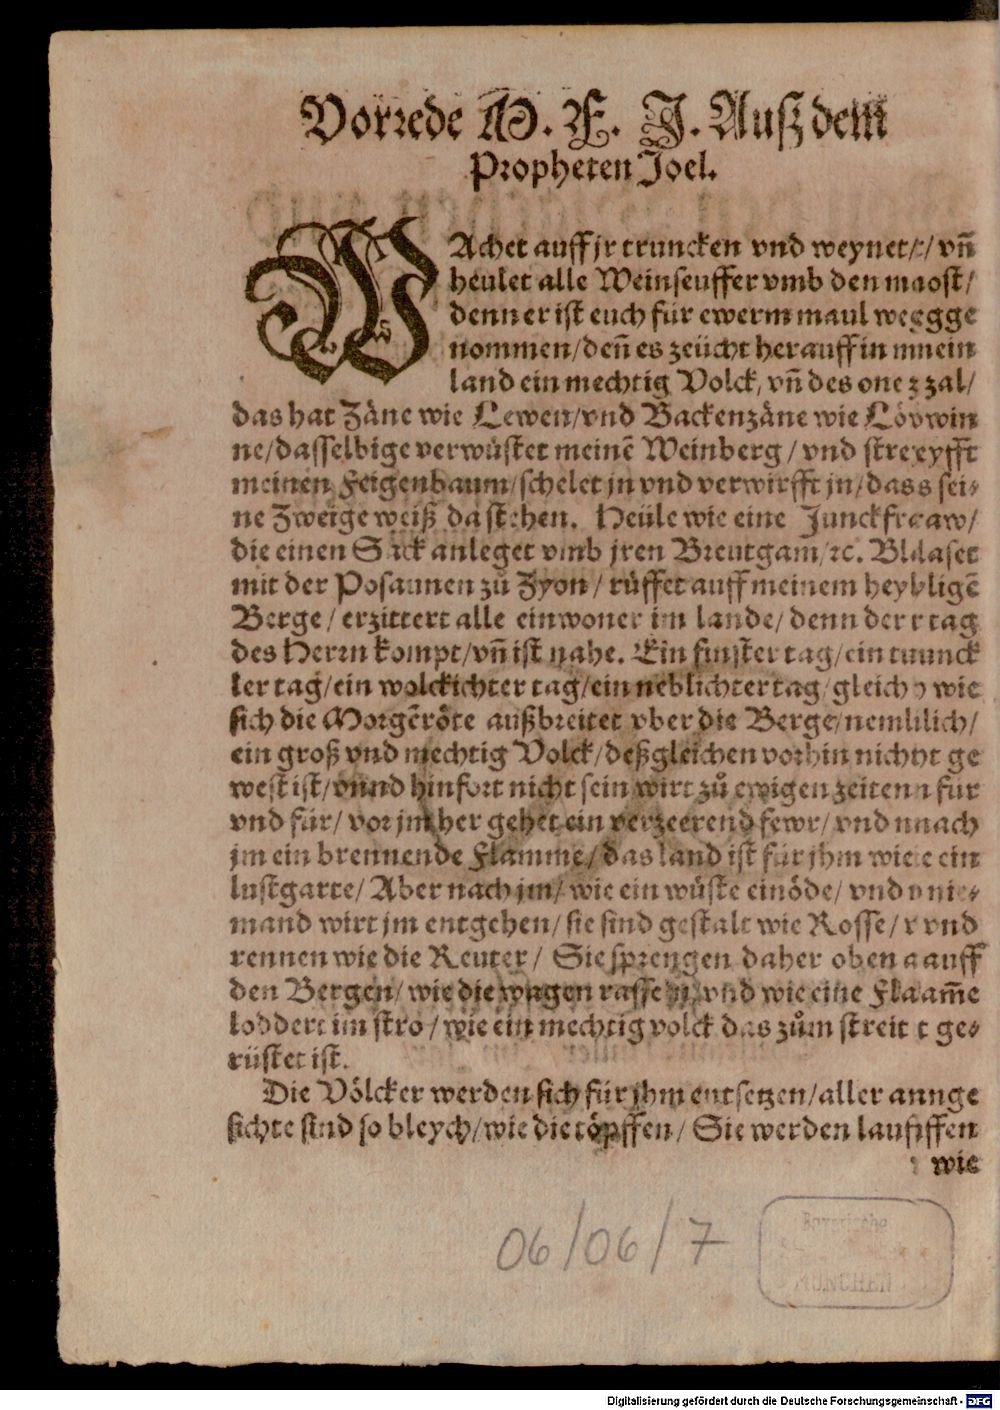 Vorrede M. F. J. Auß dem
Propheten Joel.
WAchet auff jr truncken vnd weynet/ vñ
heulet alle Weinseuffer vmb den most/
denn er ist euch für ewerm maul wegge
nommen/ deñ es zeücht herauff in mein
land ein mechtig Volck, vñ des one zal/
das hat Zäne wie Lewen/ vnd Backenzäne wie Löwin
ne/ dasselbige verwüstet meinē Weinberg / vnd streyfft
meinen Feigenbaum/ schelet jn vnd verwirfft jn/ das sei⸗
ne Zweige weiß da stehen. Heüle wie eine Junckfraw/
die einen Sack anleget vmb jren Breutgam/ ꝛc. Blaset
mit der Posaunen zů Zyon / rüffet auff meinem heyligē
Berge / erzittert alle einwoner im lande/ denn der tag
des Herrn kompt/ vñ ist nahe. Ein finster tag/ ein tunck
ler tag/ ein wolckichter tag/ ein neblichter tag/ gleich wie
sich die Morgēröte außbreitet vber die Berge/ nemlich/
ein groß vnd mechtig Volck/ deßgleichen vorhin nicht ge
west ist/ vnnd hinfort nicht sein wirt zů ewigen zeiten für
vnd für/ vor jm her gehet ein verzeerend fewr/ vnd nach
jm ein brennende Flamme/ das land ist für jhm wie ein
lustgarte/ Aber nach jm/ wie ein wüste einöde/ vnd nie⸗
mand wirt jm entgehen/ sie sind gestalt wie Rosse/ vnd
rennen wie die Reuter/ Sie sprengen daher oben auff
den Bergen/ wie die wagen rasseln/ vnd wie eine Flam̄e
loddert im stro / wie ein mechtig volck das zům streit ge⸗
rüstet ist.
Die Völcker werden sich für jhm entsetzen/ aller ange
sichte sind so bleych/ wie die töpffen/ Sie werden lauffen
wie
06/06/7
Bayerische
MÜNCHEN
Digitalisierung gefördert durch die Deutsche Forschungsgemeinschaft - DFG